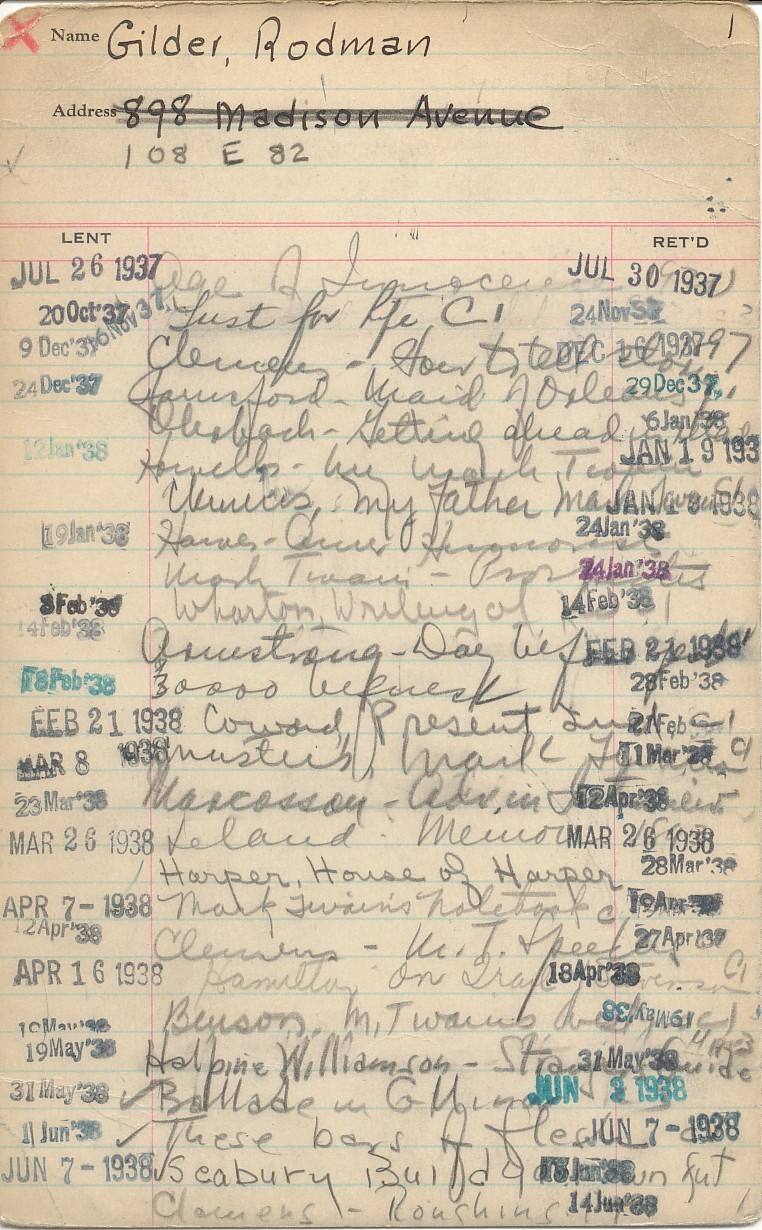 1
Name Gilder, Rodman
Address 898 Madison Avenue
108 E 82
LENT RET'D
JUL 26 1937 Age of Innocence JUL 30 1937
20 Oct '37 16 Nov 37 Lust for life C1 24 Nov 37
9 Dec '37 Clemens - How to tell a story 97 DEC 16 1937
24 Dec '37 Maid of Orleans 29 Dec 37
Getting ahead 6 Jan '38
12 Jan '38 Howells - My Mark Twain JAN 19 193
Clemens, My Father Mark Twain C1 JAN 18 1938
19 Jan '38 Hawes - Amer Humorists 24 Jan '38
Mark Twain - 24 Jan '38
8 Feb '38 Wharton, Writing of 1 14 Feb '38
14 Feb '38 Armstrong - Day FEB 21 1938
18 Feb '38 30000 bequest 28 Feb '38
FEB 21 1938 Coward, Present Ind C1 21 Feb
MAR 8 1938 Masters, Mark Twain C1 11 Mar '38
23 Mar '38 Marcosson - Adv. in 12 Apr '38
MAR 26 1938 Leland - Memoirs MAR 26 1938
Harper, House of Harper 28 Mar '38
APR 7 - 1938 Mark Twain's Notebook C 19 Apr '38
12 Apr '38 Clemens - M. T. Speeches 27 Apr '37
APR 16 1938 Hamilton On Trail Stevenson C1 18 Apr '38
Benson, M. Twain's 19 May '38
19 May '38 Halpine Williamson - Guide 31 May '38
31 May '38 ✓ Ballade in G Minor JUN 2 1938
1 Jun '38 ✓ These bars of flesh JUN 7 - 1938
JUN 7 - 1938 ✓ Seabury Build own fut
Clemens - Roughing 1 14 Jun '38